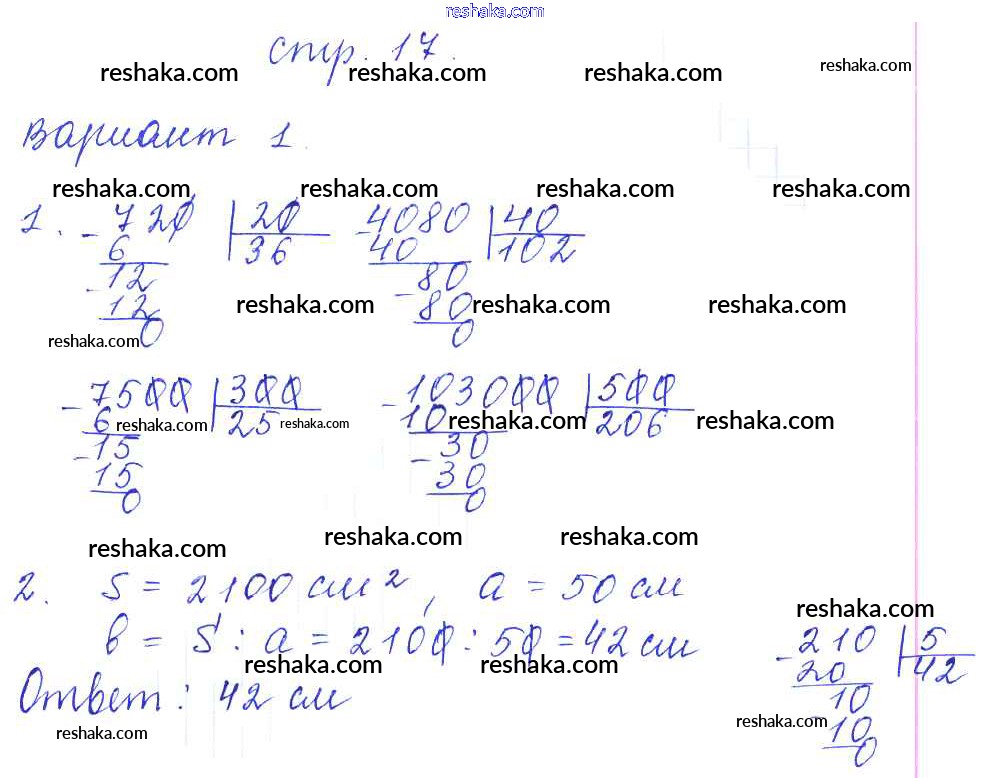 reshaka.com
стр. 17.
reshaka.com reshaka.com reshaka.com reshaka.com
Вариант 1.
reshaka.com reshaka.com reshaka.com reshaka.com
1. - 720 | 20 - 4080 | 40
6 36 40 102
- 12 80
12 reshaka.com - 80 reshaka.com reshaka.com
reshaka.com 0 0
- 7500 | 300 - 103000 | 500
6 reshaka.com 25 reshaka.com 10 reshaka.com 206 reshaka.com
- 15 - 30
15 30
0 0
reshaka.com reshaka.com reshaka.com
2. S = 2100 см², a = 50 см
reshaka.com
b = S : a = 2100 : 50 = 42 см - 210 | 5
reshaka.com reshaka.com 20 42
Ответ: 42 см 10
reshaka.com reshaka.com 10
0